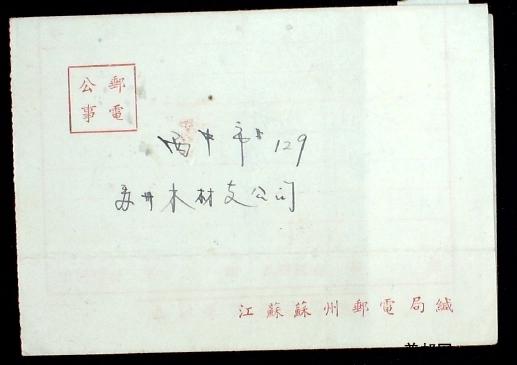 郵電
公事
西中市 129
苏州木材支公司
江蘇蘇州郵電局緘